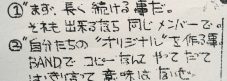 ①"まず、長く続ける事だ。
それも出来るなら同じメンバーで。
②"自分たちの"オリジナル"を作る事。
BANDでコピーなんてやってたて
はっきり言って意味はないぜ。